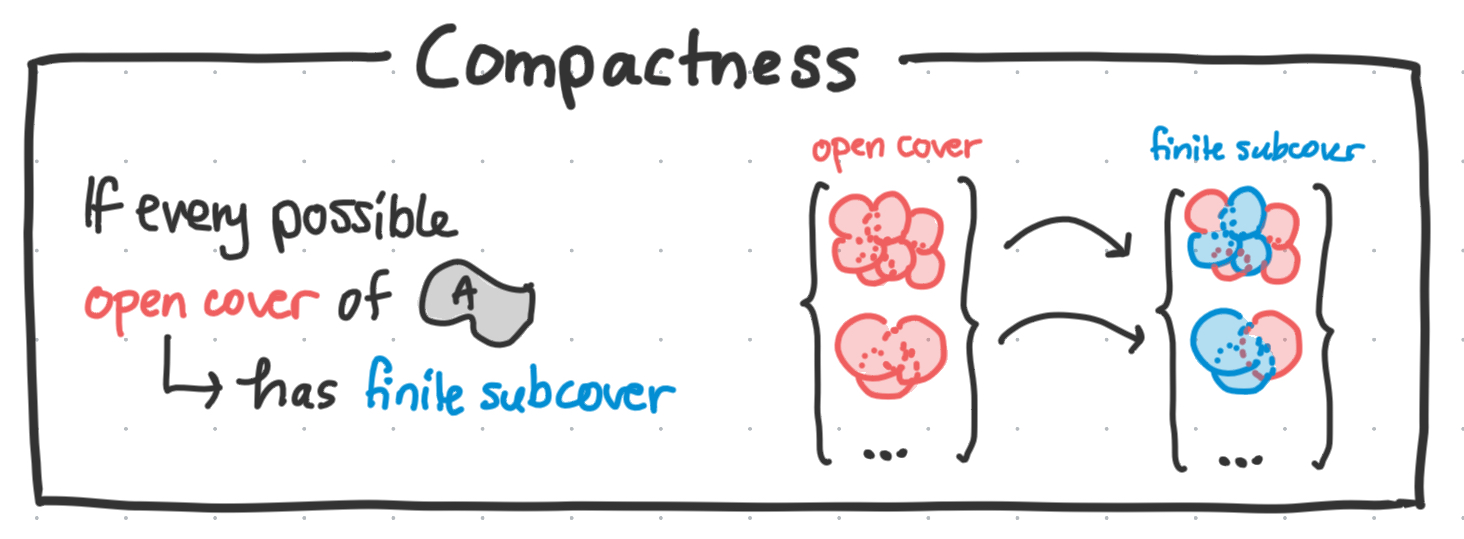 Compactness
If every possible
open cover of A
has finite subcover
open cover
finite subcover
...
...